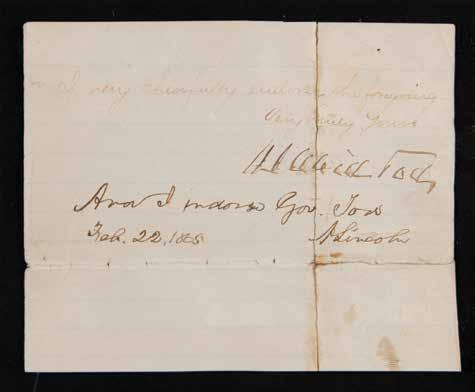 I very cheerfully endorse the foregoing
Very truly yours
David Tod
And I indorse Gov. Tod
Feb. 22, 1865
A Lincoln